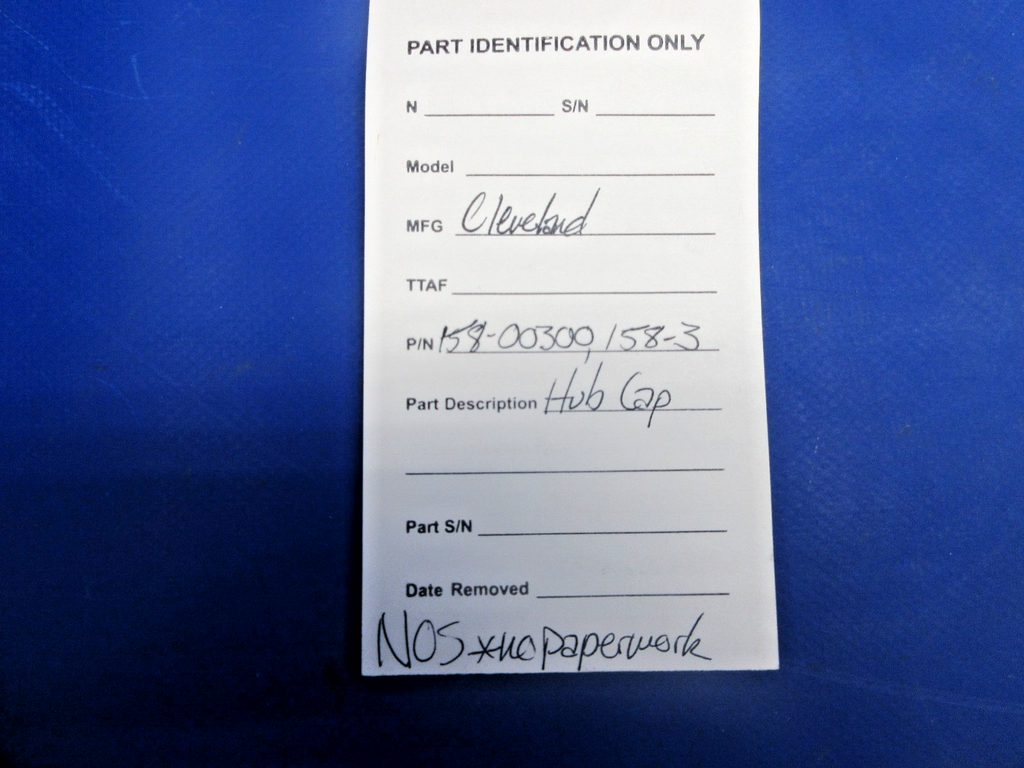 PART IDENTIFICATION ONLY
N ____________ S/N ____________
Model ____________
MFG Cleveland
TTAF ____________
P/N 158-00300, 158-3
Part Description Hub Cap
Part S/N ____________
Date Removed ____________
NOS *no paperwork